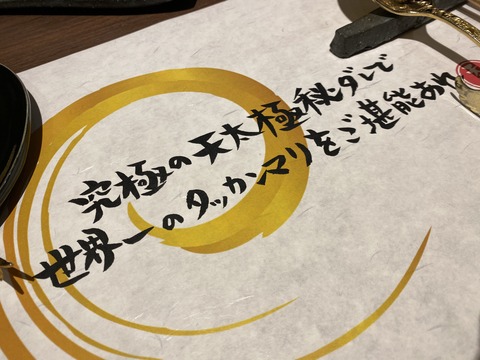 究極の天太極秘ダレで
世界一のタッカンマリをご堪能あれ